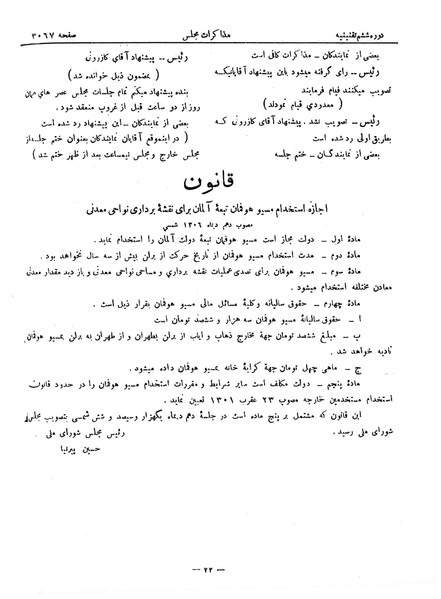 دوره ششم تقنینیه
مذاکرات مجلس
صفحه ۳۰۶۷
بعضی از نمایندگان ـ مذاکرات کافی است
رئیس ـ رأی گرفته میشود باین پیشنهاد آقایانیکه
تصویب میکنند قیام فرمایند
( معدودی قیام نمودند )
رئیس ـ تصویب نشد . پیشنهاد آقای کازرونی که
بطریق اولی رد شده است
بعضی از نمایندگان ـ ختم جلسه
رئیس ـ پیشنهاد آقای کازرونی
( بمضمون ذیل خوانده شد )
بنده پیشنهاد میکنم تمام جلسات مجلس عصر های
روز از دو ساعت قبل از غروب شود .
بعضی از نمایندگان ـ این پیشنهاد رد شده است
( در اینموقع آقایان نمایندگان بعنوان ختم جلسه از
مجلس خارج و مجلس نیمساعت بعد از ظهر ختم شد )
قانون
اجازه استخدام مسیو هوفمان تبعهٔ آلمان برای نقشه برداری نواحی معدنی
مصوب دهم دیماه ۱۳۰۶ شمسی
مادهٔ اول ـ دولت مجاز است مسیو هوفمان تبعهٔ دولت آلمان را استخدام نماید .
مادهٔ دوم ـ مدت استخدام مسیو هوفمان از تاریخ حرکت از برلن بیش از سه سال نخواهد بود .
مادهٔ سوم ـ مسیو هوفمان برای تصدی عملیات نقشه برداری و مساحی نواحی معدنی و بازدید مقدار معدنی
معادن مختلفه استخدام میشود .
مادهٔ چهارم ـ حقوق سالیانه وکلیهٔ مسائل مالی مسیو هوفمان بقرار ذیل است .
ا ـ حقوق سالیانهٔ مسیو هوفمان سه هزار و ششصد تومان است
ب ـ مبلغ ششصد تومان جههٔ مخارج ذهاب و ایاب از برلن بطهران و از طهران به برلن بمسیو هوفمان
تادیه خواهد شد .
ج ـ ماهی چهل تومان جههٔ کرایهٔ خانه بمسیو هوفمان داده میشود .
مادهٔ پنجم ـ دولت مکلف است سایر شرایط و مقررات استخدام مسیو هوفمان را در حدود قانون
استخدام مستخدمین خارجه مصوب ۲۳ عقرب ۱۳۰۱ تعیین نماید .
این قانون که مشتمل بر پنج ماده است در جلسهٔ دهم دیماه یکهزار وسیصد و شش شمسی بتصویب مجلس
شورای ملی رسید .
رئیس مجلس شورای ملی
حسین پیرنیا
ـ ۲۲ ـ